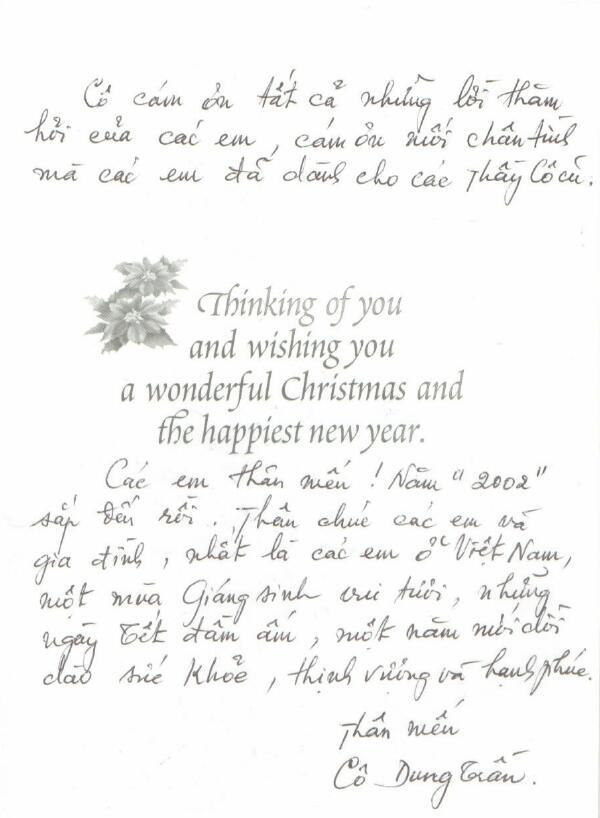 Cô cám ơn tất cả những lời thăm
hỏi của các em, cám ơn mối chân tình
mà các em đã dành cho các Thầy Cô cũ.
Thinking of you
and wishing you
a wonderful Christmas and
the happiest new year.
Các em thân mến! Năm "2002"
sắp đến rồi. Thân chúc các em và
gia đình, nhất là các em ở Việt Nam,
một mùa Giáng sinh vui tươi, những
ngày Tết đầm ấm, một năm mới dồi
dào sức khoẻ, thịnh vượng và hạnh phúc.
Thân mến
Cô Dung Trần.